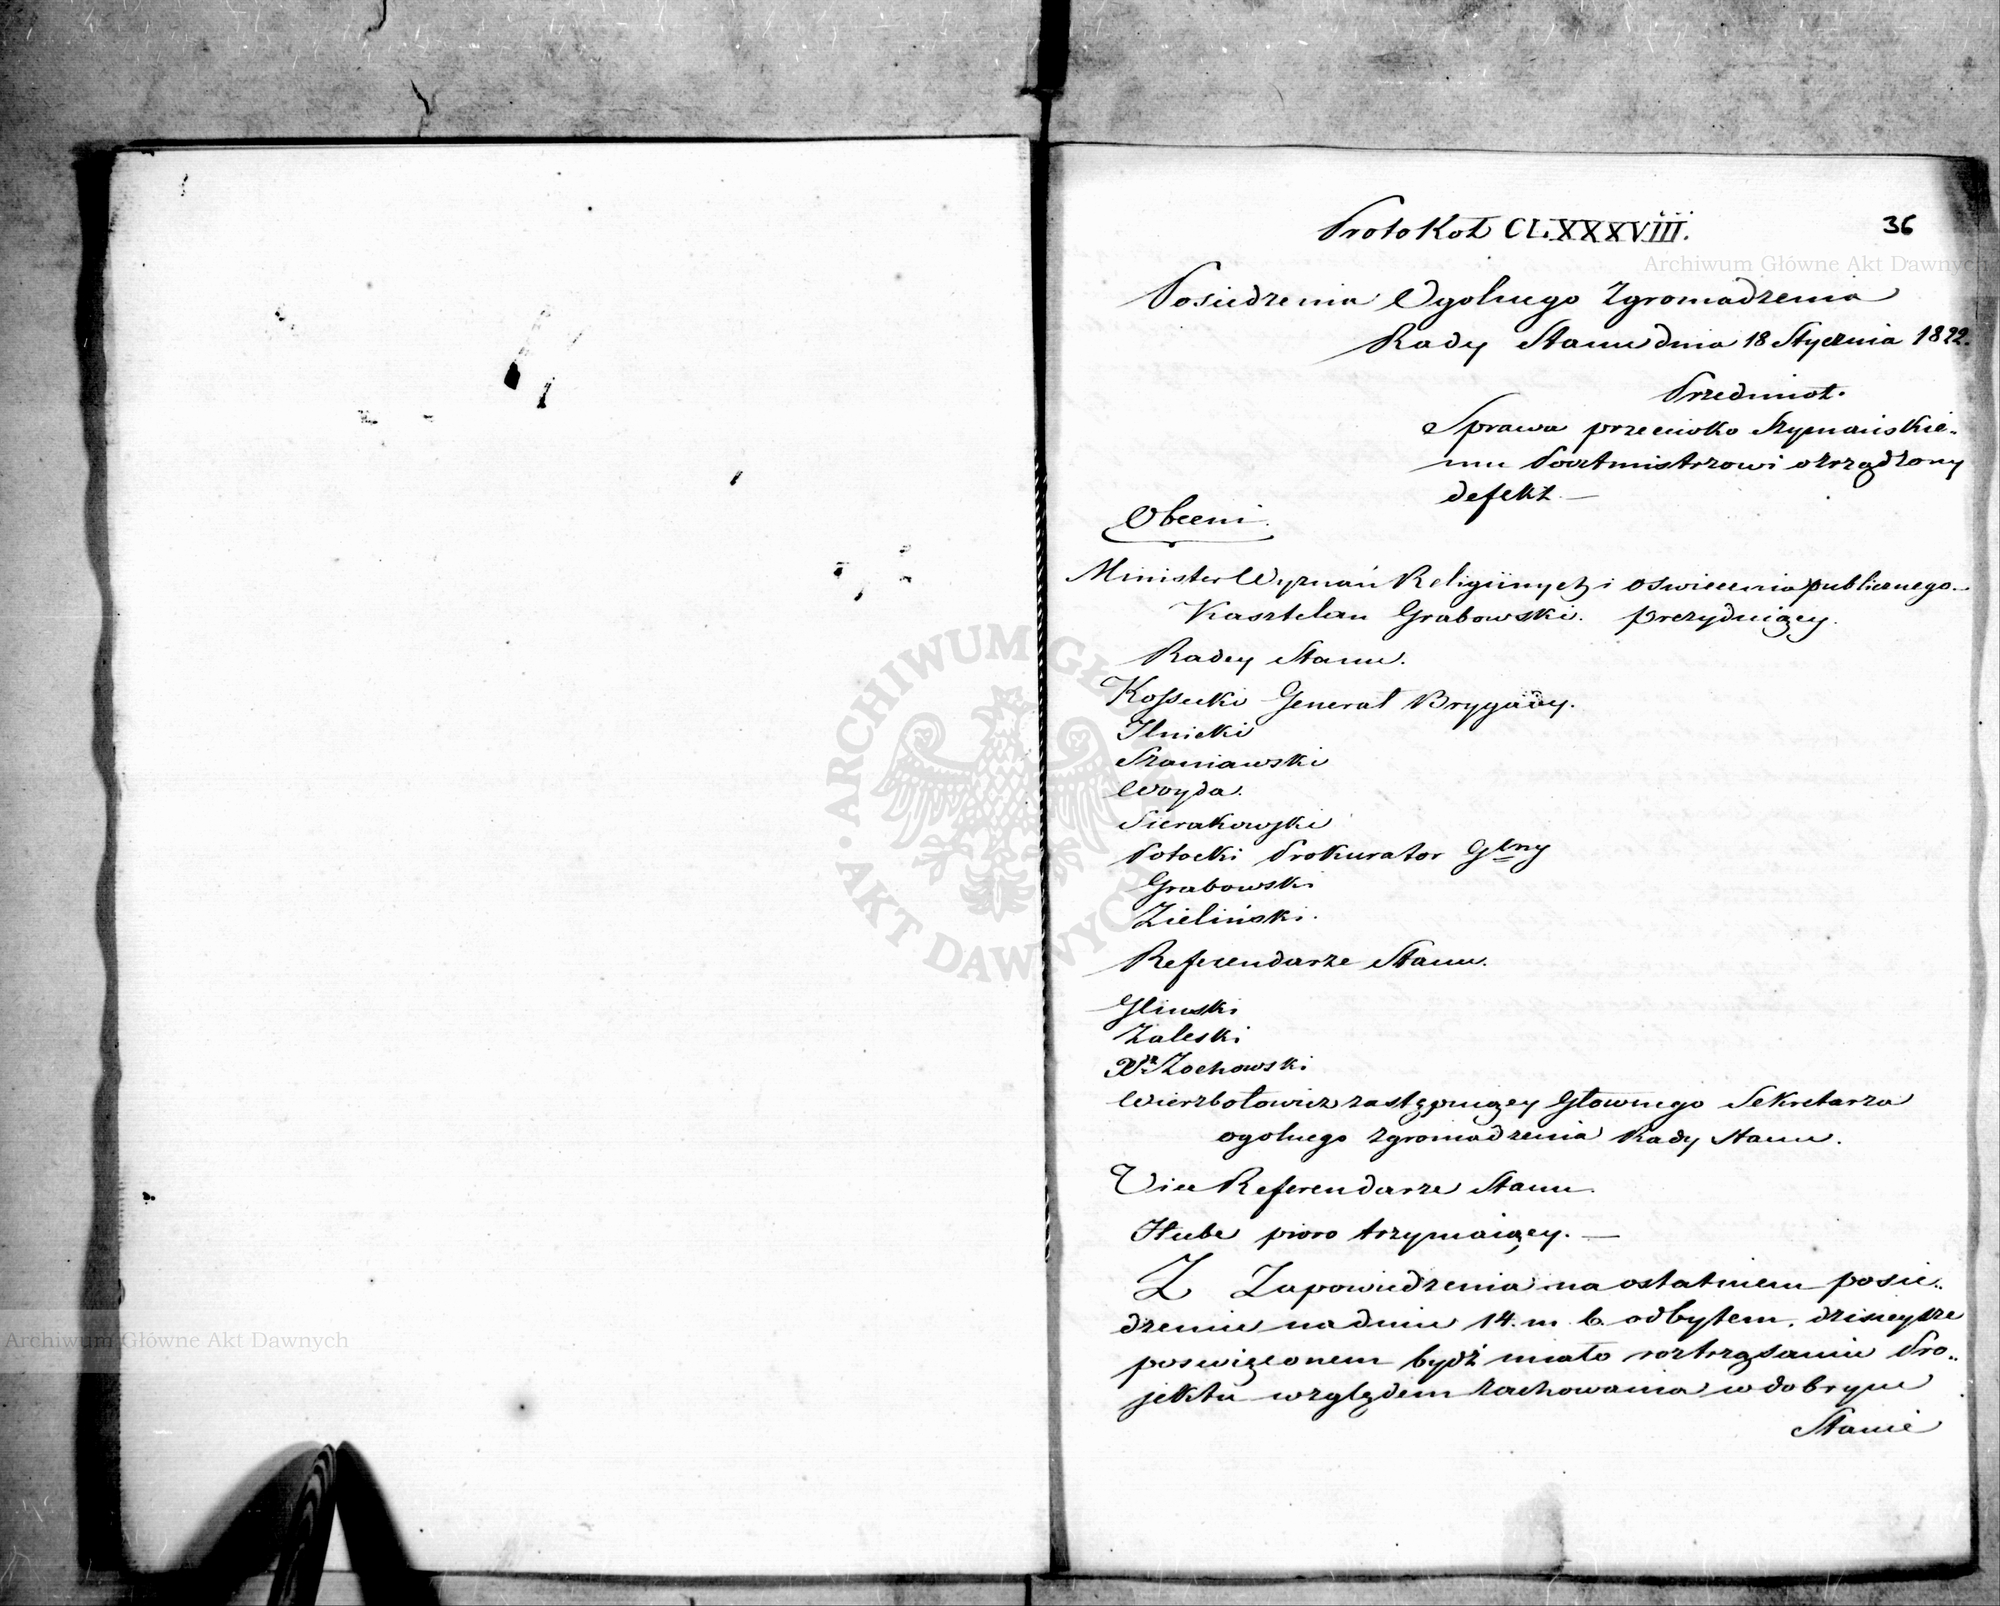 Protokoł CLXXXVIII.
36
Posiedzenia Ogolnego Zgromadzenia
Rady Stanu dnia 18 Stycznia 1822.
Przedmiot.
Sprawa przeciwko Szymańskie-
mu Pocztmistrzowi o zrządzony
defekt. —
Obecni.
Minister Wyznań Religiinych i oswiecenia publicznego.
Kasztelan Grabowski. prezyduiący.
Radcy Stanu.
Kossecki Generał Brygady.
Ilnicki
Szaniawski
Woyda.
Sierakowski
Potocki Prokurator Glny
Grabowski
Zieliński.
Referendarze Stanu.
Gliński
Zaleski
Xdz Żochowski
Wierzbołowicz zastępuiący Głownego Sekretarza
ogolnego zgromadzenia Rady Stanu.
Vice Referendarze Stanu.
Hube pioro trzymaiący. —
Z Zapowiedzenia na ostatniem posie-
dzeniu na dniu 14. m. b. odbytem, dzisieysze
poswięconem bydź miało roztrząsaniu Pro-
jektu względem zachowania w dobrym
Stanie
Archiwum Główne Akt Dawnych
ARCHIWUM GŁÓWNE AKT DAWNYCH
Archiwum Główne Akt Dawnych